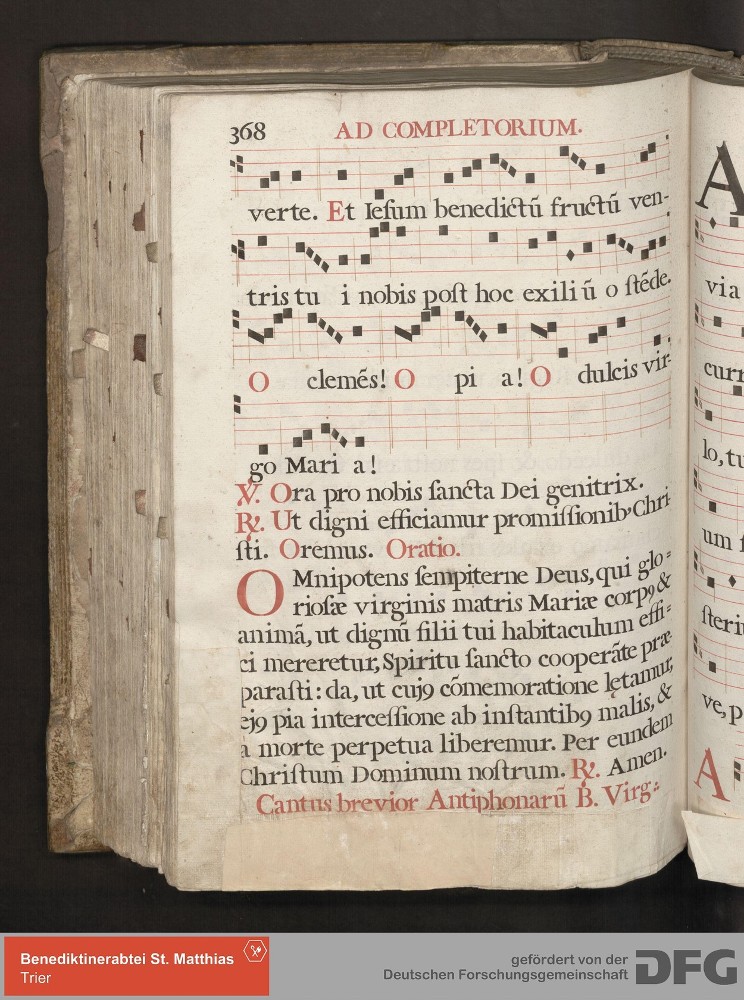 368 AD COMPLETORIUM.
verte. Et Iesum benedictũ fructũ ven-
tris tu i nobis post hoc exiliũ o stẽde.
O clemẽs! O pi a! O dulcis vir-
go Mari a!
℣. Ora pro nobis sancta Dei genitrix.
℟. Ut digni efficiamur promissionibꝰ Chri
sti. Oremus. Oratio.
OMnipotens sempiterne Deus, qui glo=
riosæ virginis matris Mariæ corpꝰ &
animã, ut dignũ filii tui habitaculum effi=
ci mereretur, Spiritu sancto cooperãte præ-
parasti: da, ut cujꝰ cõmemoratione lętamur,
ejꝰ pia intercessione ab instantibꝰ malis, &
a morte perpetua liberemur. Per eundem
Christum Dominum nostrum. ℟. Amen.
Cantus brevior Antiphonarũ B. Virg:
A
via
curr
lo, tu
um
steriu
ve, p
A
Benediktinerabtei St. Matthias
Trier
gefördert von der
Deutschen Forschungsgemeinschaft
DFG